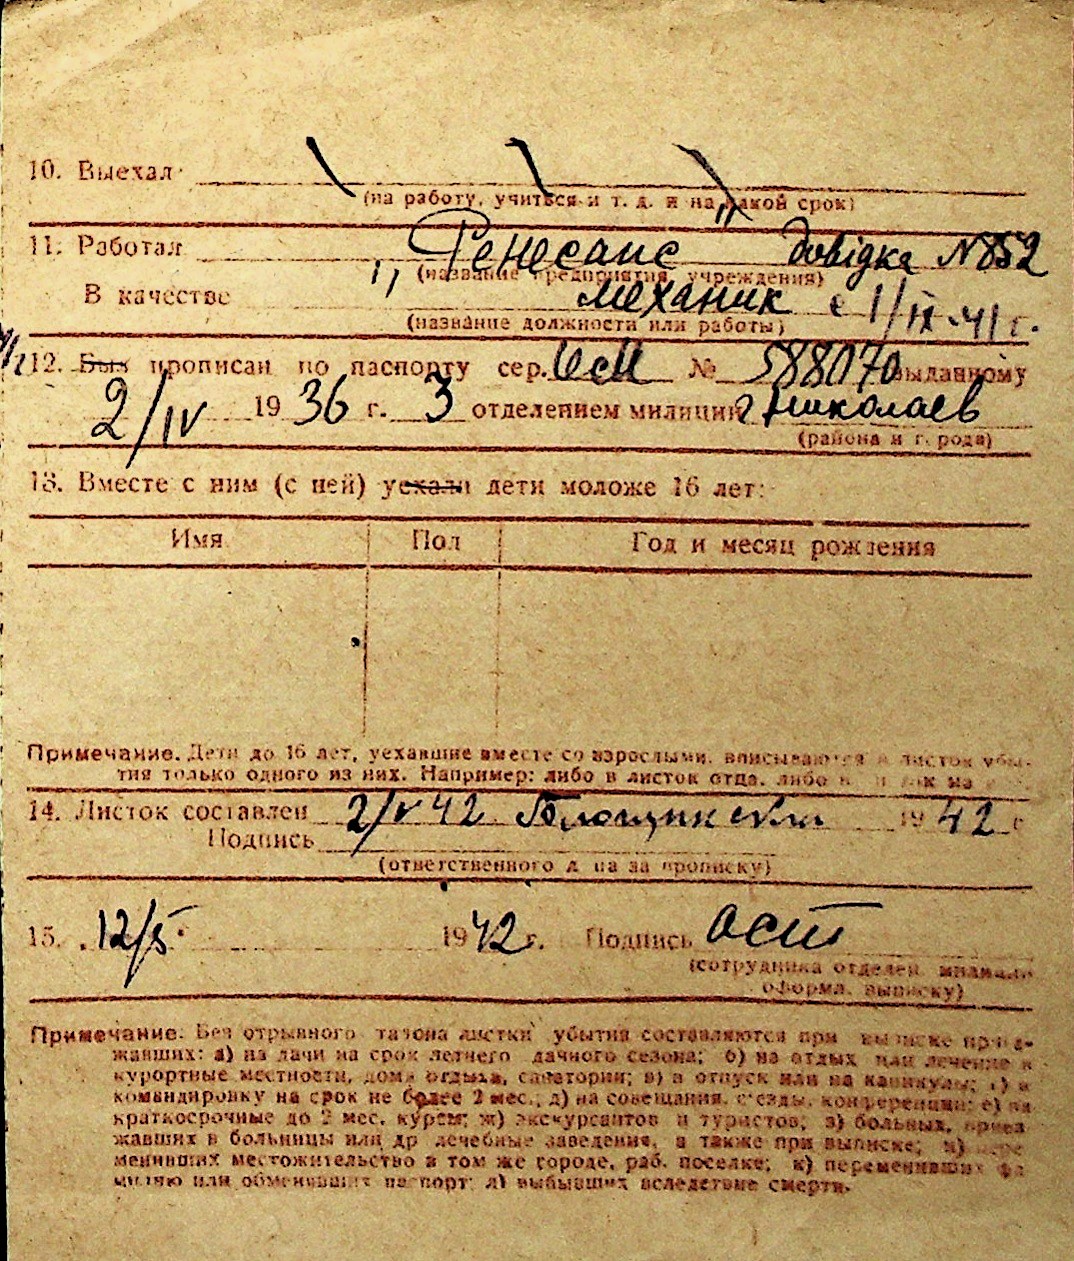 10. Выехал
(на работу, учиться и т. д. и на какой срок)
11. Работал „Ренесанс" довідка N852
(название предприятия, учреждения)
В качестве механик с 1/IX-41 г.
(название должности или работы)
12. Был прописан по паспорту сер. № 588070 выданному
2/IV 1936 г. 3 отделением милиции г. Николаев
(района и города)
13. Вместе с ним (с ней) уехали дети моложе 16 лет:
Имя Пол Год и месяц рождения
Примечание. Дети до 16 лет, уехавшие вместе со взрослыми, вписываются в листок убы-
тия только одного из них. Например: либо в листок отца, либо
14. Листок составлен 2/V 42 1942 г
Подпись
(ответственного лица за прописку)
15. 12/5 1942 г. Подпись
(сотрудника отделен. милиции
оформл. выписку)
Примечание: Без отрывного талона листки убытия составляются при выписке
жавших: а) на дачи на срок летнего дачного сезона; б) на отдых или лечение в
курортные местности, дома отдыха, санатории; в) в отпуск или на каникулы; г) в
командировку на срок не более 2 мес.; д) на совещания, съезды, конференции; е) на
краткосрочные до 2 мес. курсы; ж) экскурсантов и туристов; з) больных, приез
жавших в больницы или др лечебные заведения, а также при выписке; и) пере
менивших местожительство в том же городе, раб. поселке; к) переменивших фа
милию или обменивших паспорт; л) выбывших вследствие смерти.